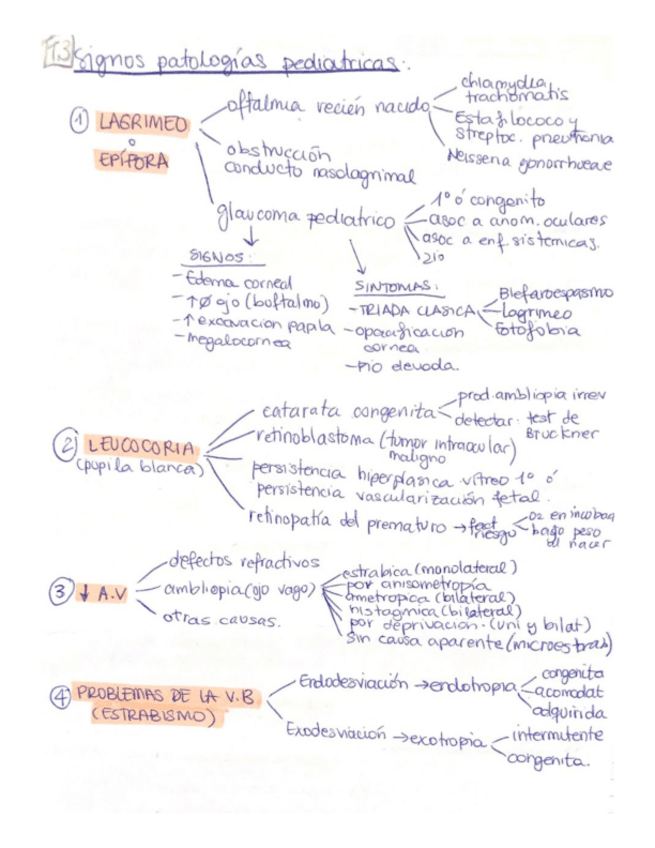 T3 Signos patologías pediatricas.
① LAGRIMEO
o
EPÍFORA
oftalmia recién nacido
chlamydia
trachomatis
Estafilococo y
Streptoc. pneumonia
Neissena gonorrhueae
obstrucción
conducto nasolagrimal
glaucoma pediatrico
1º ó congenito
asoc a anom. oculares
asoc a enf sistemicas.
2io
SIGNOS:
- Edema corneal
- ↑Ø ojo (boftalmo)
- ↑ excavacion papila
- megalocornea
SINTOMAS:
- TRIADA CLASICA
Blefaroespasmo
Lagrimeo
Fotofobia
- opacificación
cornea.
- PIO elevada.
② LEUCOCORIA
(pupila blanca)
catarata congenita
prod. ambliopia irrev
detectar: test de
Bruckner
retinoblastoma (tumor intraocular)
maligno
persistencia hiperplasica vitreo 1º ó
persistencia vascularización fetal.
retinopatía del prematuro → fact
riesgo
O2 en incoban
bajo peso
al nacer
③ ↓ A.V
defectos refractivos
ambliopia (ojo vago)
estrabica (monolateral)
por anisometropía
ametropica (bilateral)
nistagmica (bilateral)
por deprivación. (uni y bilat)
sin causa aparente (microestrab)
otras causas.
④ PROBLEMAS DE LA V.B
(ESTRABISMO)
Endodesviación → endotropia
congenita
acomodat
adquirida
Exodesviación → exotropia
intermitente
congenita.